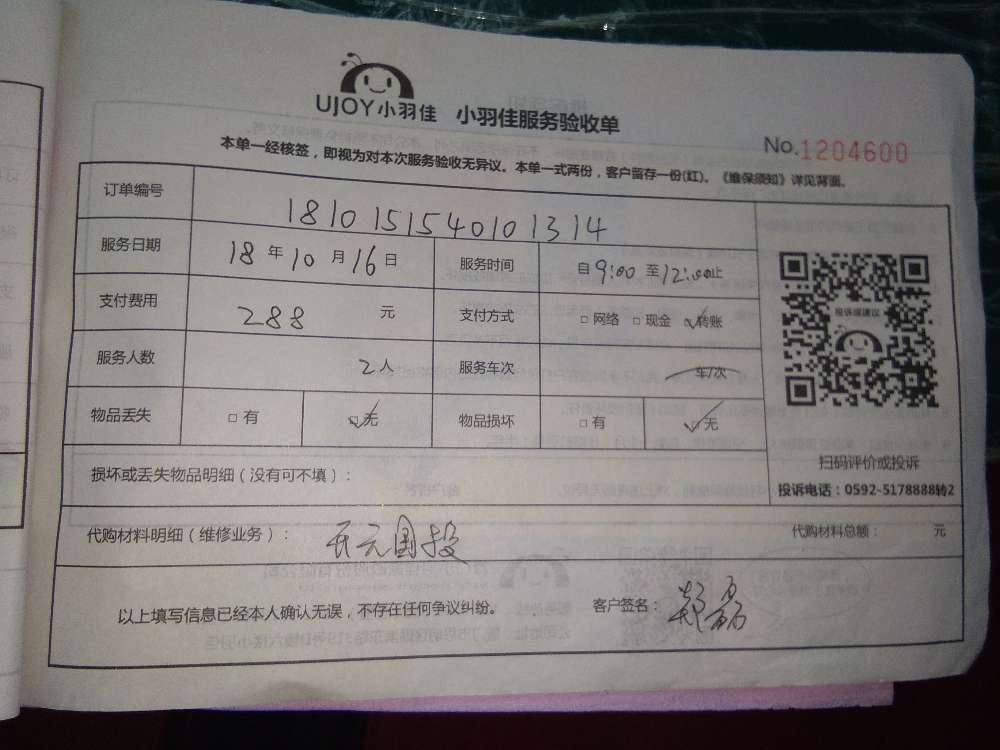 UJOY小羽佳 小羽佳服务验收单
No.1204600
本单一经核签，即视为对本次服务验收无异议。本单一式两份，客户留存一份(红)。《维保须知》详见背面。
订单编号 1810151540101314
服务日期 18年10月16日 服务时间 自9:00至12:00止
支付费用 288元 支付方式 □网络 □现金 ☑转账
投诉或建议
服务人数 2人 服务车次 车/次
物品丢失 □有 ☑无 物品损坏 □有 ☑无
扫码评价或投诉
损坏或丢失物品明细（没有可不填）：
投诉电话：0592-5178888转2
代购材料明细（维修业务）： 开元国投 代购材料总额： 元
以上填写信息已经本人确认无误，不存在任何争议纠纷。 客户签名：